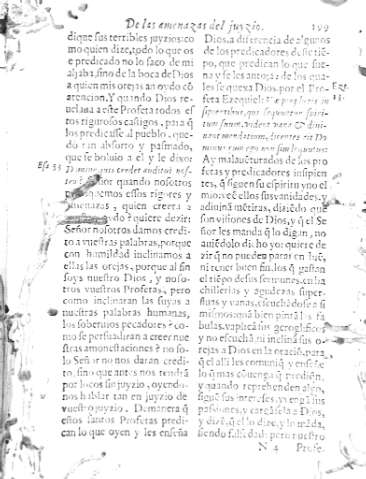 De las amenazas del juyzio. 199
dique sus terribles juyzios: co
mo quien dize, todo lo que os
e predicado no lo saco de mi
aljaba, sino de la boca de Dios
a quien mis orejas an oydo cō
atencion. Y quando Dios re-
uelaua a este Profeta todos es
tos rigurosos castigos, para q̄
los predicasse al pueblo, que-
dò tan absorto y pasmado,
que se boluio a el y le dixo:
Esa. 53 Domine quis credet auditui nos-
tro? Señor quando nosotros
prediquemos estos rigores y
amenazas, quien creera a
oydo? quiere dezir:
Señor nosotros damos credi-
to a vuestras palabras, porque
con humildad inclinamos a
ellas las orejas, porque al fin
soys nuestro Dios, y noso-
tros vuestros Profetas, pero
como inclinaran las suyas a
nuestras palabras humanas,
los soberuios pecadores? co-
mo se persuadiran a creer nue
stras amonestaciones? no so-
lo Señor no nos daran credi-
to, sino que antes nos tendrā
por locos sin juyzio, oyendo-
nos hablar tan en juyzio de
vuestro juyzio. De manera q̄
estos santos Profetas predi-
can lo que oyen y les enseña
Dios, a diferencia de algunos
de los predicadores deste tiē-
po, que predican lo que sue-
na y se les antoja: de los qua-
les se quexa Dios, por el Pro-
feta Ezequiel: Væ prophetis in- Eze.
sipientibus, qui sequuntur spiri- 13.
tum suum, vident vana & diui-
nant mendatium, dicentes ait Do
minus cum ego non sim loquutus:
Ay malauenturados de sus pro
fetas y predicadores insipien
tes, q̄ siguen su espiritu y no el
mio: veē ellos sus vanidades, y
adiuinā mētiras, diziēdo que
son visiones de Dios, y q̄ el Se
ñor les manda q̄ lo digan, no
auiēdolo dicho yo: quiere de
zir q̄ no pueden parar en biē,
ni tener buen fin, los q̄ gastan
el tiēpo de sus sermones, en ba
chillerias y agudezas super-
fluas y vanas, escuchādose a si
mismos, que bien pintā las fa
bulas, y aplicā sus geroglificos
y no escuchā, ni inclinā sus o-
rejas a Dios en la oraciō, para
q̄ el alli les comuniq̄ y enseñe
lo q̄ mas cōuenga q̄ prediquē,
y quando reprehenden algo,
siguē sus intereses, y vengā sus
pasiones, y cargāsela a Dios,
y dizē, q̄ el lo dize, y lo māda,
siendo falsedad: pero nuestro
N 4 Profe.